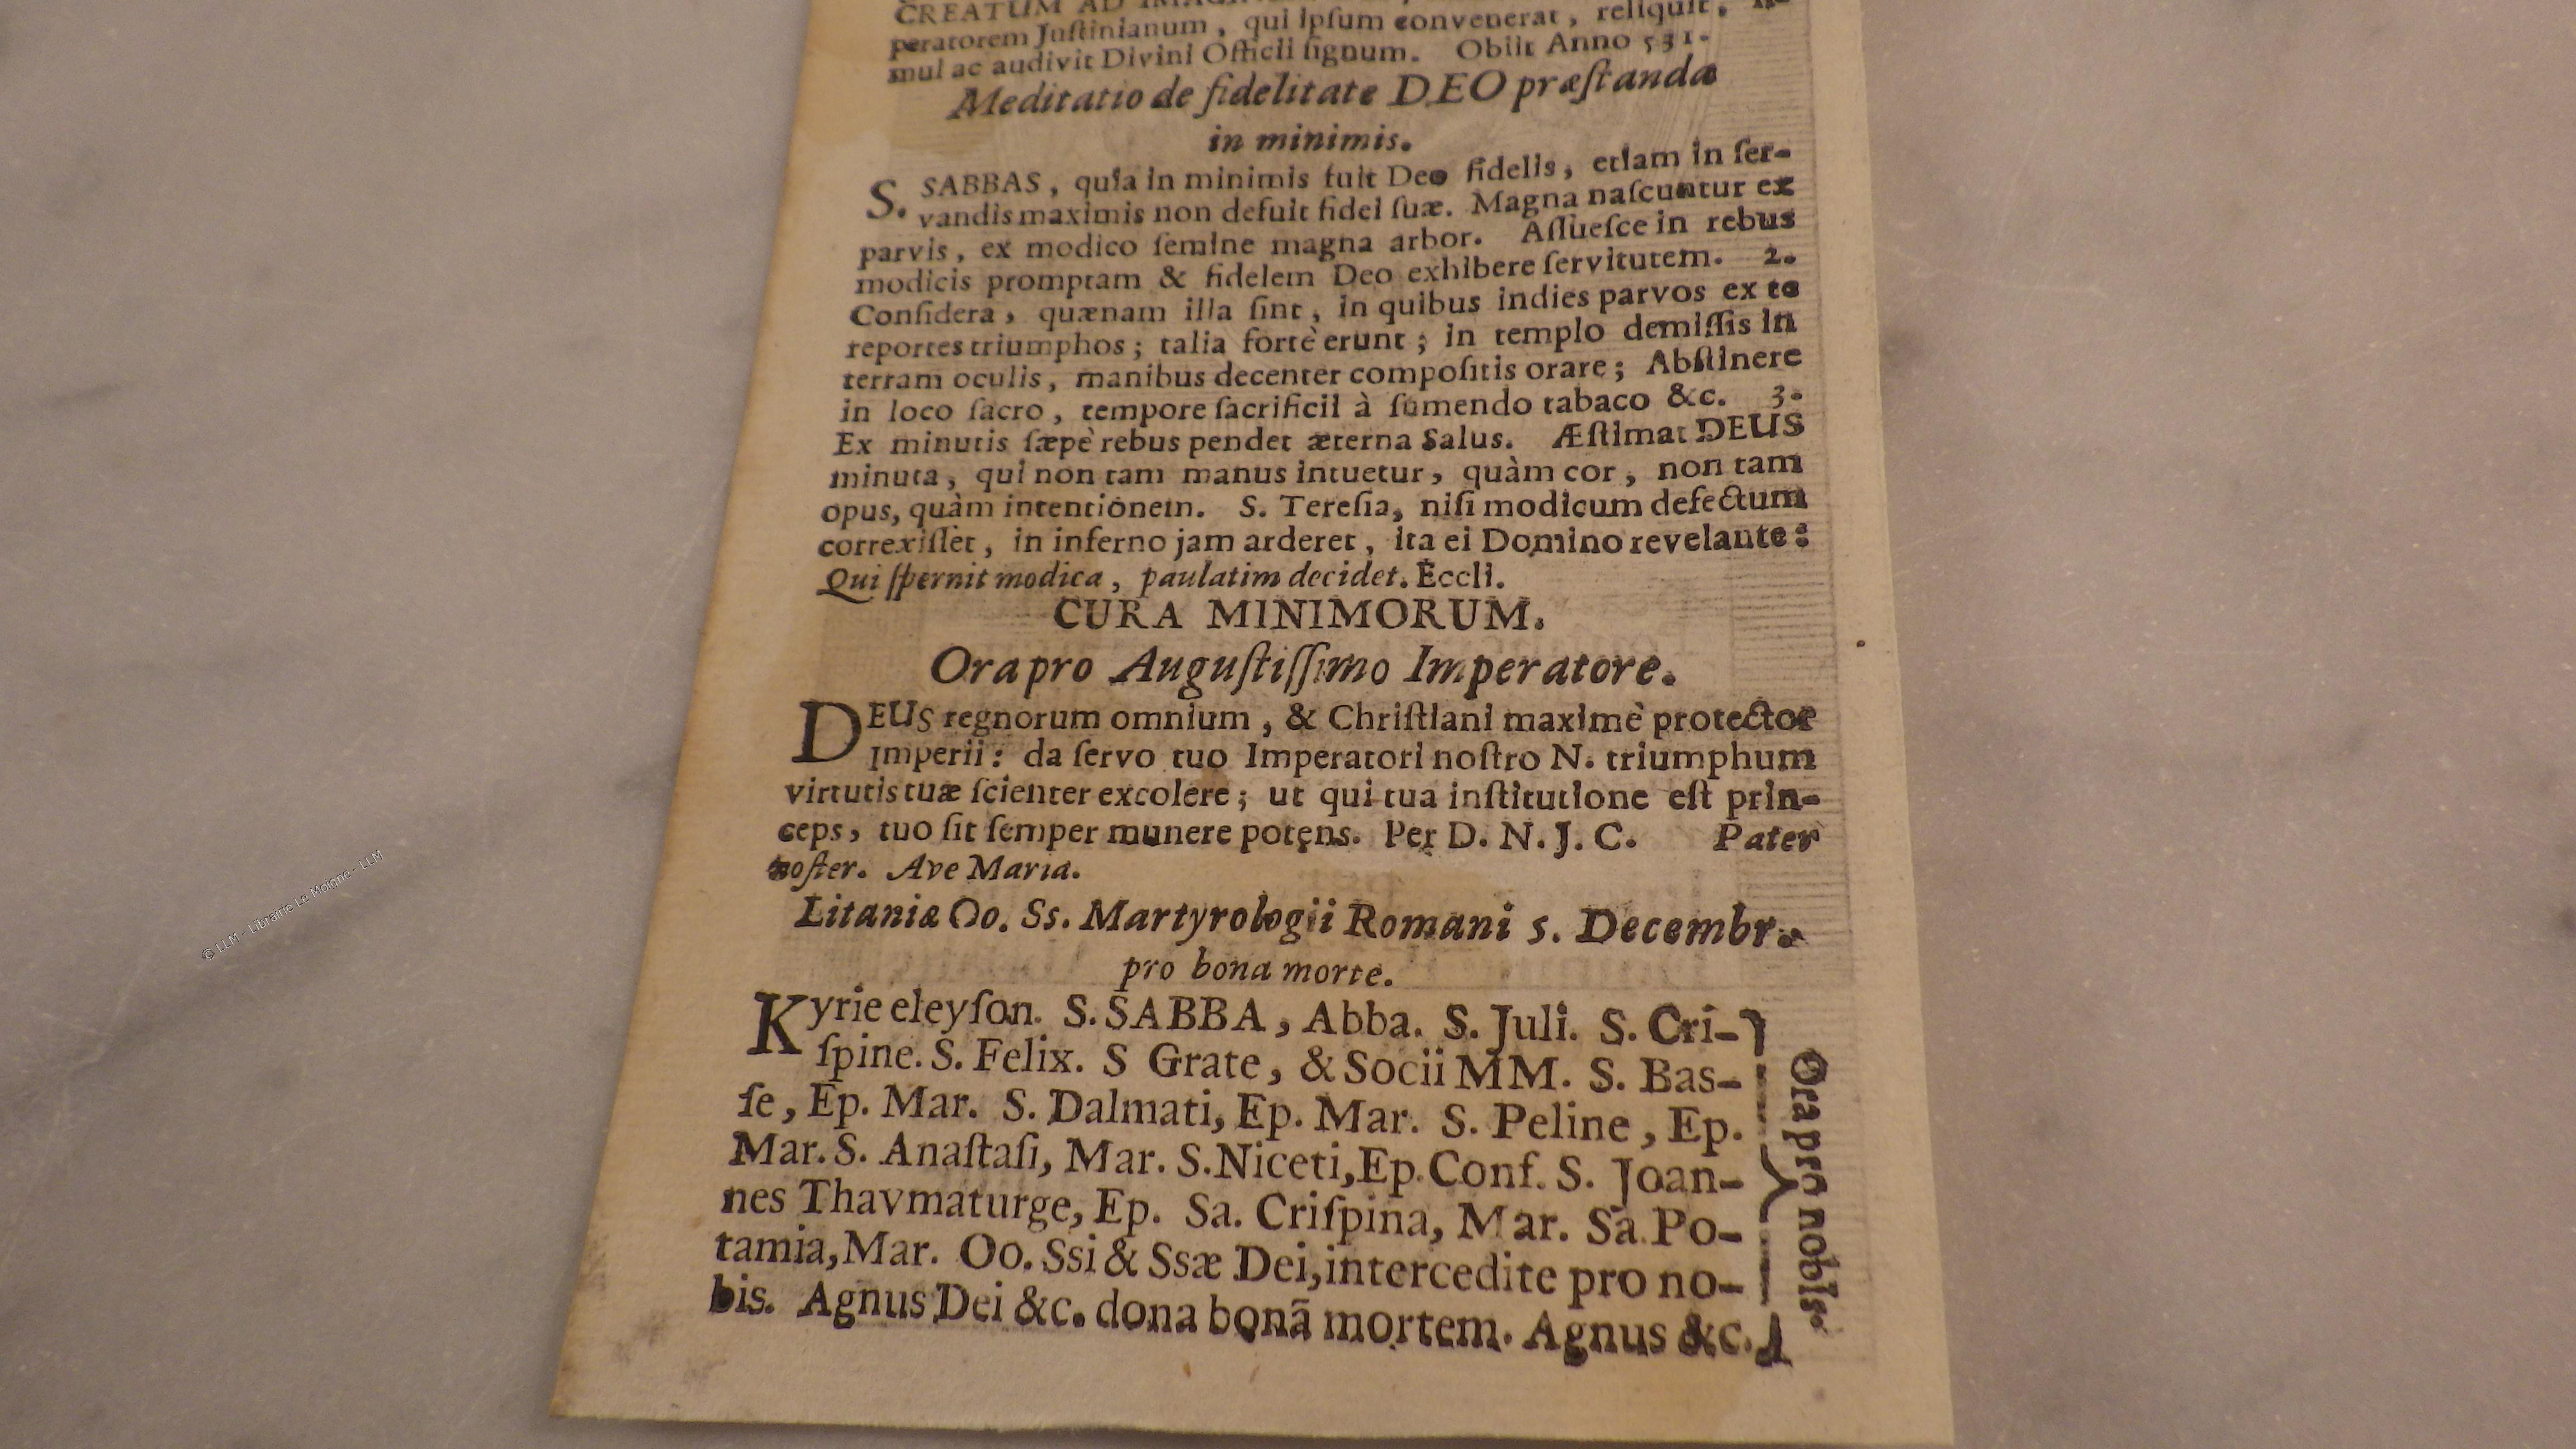 CREATUM AD
peratorem Juſtinianum, qui ipſum convenerat, reliquit,
mul ac audivit Divini Officii ſignum. Obiit Anno 531.
Meditatio de fidelitate DEO præſtanda
in minimis.
S. SABBAS, quia in minimis fuit Deo fidelis, etiam in ſer-
vandis maximis non defuit fidei ſuæ. Magna naſcuntur ex
parvis, ex modico ſemine magna arbor. Aſſueſce in rebus
modicis promptam & fidelem Deo exhibere ſervitutem. 2.
Conſidera, quænam illa ſint, in quibus indies parvos ex te
reportes triumphos; talia fortè erunt; in templo demiſſis in
terram oculis, manibus decenter compoſitis orare; Abſtinere
in loco ſacro, tempore ſacrificii à ſumendo tabaco &c. 3.
Ex minutis ſæpè rebus pendet æterna Salus. Æſtimat DEUS
minuta, qui non tam manus intuetur, quàm cor, non tam
opus, quàm intentionem. S. Tereſia, niſi modicum defectum
correxiſſet, in inferno jam arderet, ita ei Domino revelante:
Qui ſpernit modica, paulatim decidet. Eccli.
CURA MINIMORUM.
Ora pro Auguſtiſſimo Imperatore.
DEUS regnorum omnium, & Chriſtiani maximè protector
Imperii: da ſervo tuo Imperatori noſtro N. triumphum
virtutis tuæ ſcienter excolere; ut qui tua inſtitutione eſt prin-
ceps, tuo ſit ſemper munere potens. Per D. N. J. C. Pater
noſter. Ave Maria.
Litaniæ Oo. Ss. Martyrologii Romani 5. Decembr.
pro bona morte.
Kyrie eleyſon. S. SABBA, Abba. S. Juli. S. Cri-
ſpine. S. Felix. S Grate, & Socii MM. S. Bas-
ſe, Ep. Mar. S. Dalmati, Ep. Mar. S. Peline, Ep.
Mar. S. Anaſtaſi, Mar. S. Niceti, Ep. Conf. S. Joan-
nes Thavmaturge, Ep. Sa. Criſpina, Mar. Sa. Po-
tamia, Mar. Oo. Ssi & Ssæ Dei, intercedite pro no-
bis. Agnus Dei &c. dona bonã mortem. Agnus &c.
Ora pro nobis.
© LLM - Librairie Le Moigne - LLM